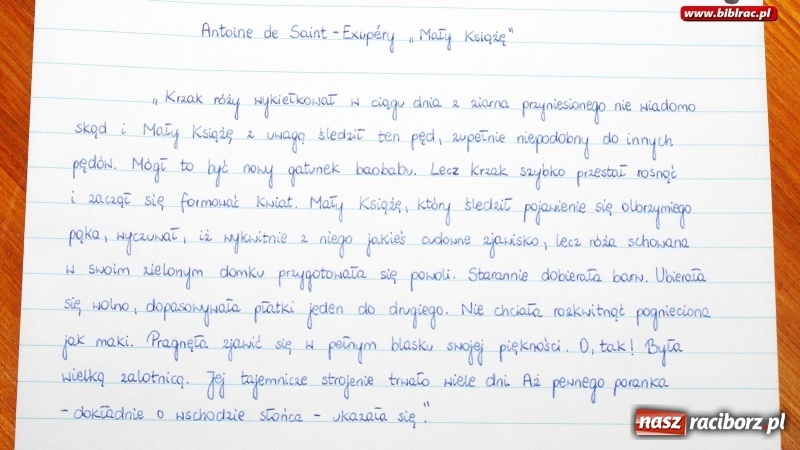 www.biblrac.pl
Antoine de Saint-Exupéry „Mały Książę"
„Krzak róży wykiełkował w ciągu dnia z ziarna przyniesionego nie wiadomo
skąd i Mały Książę z uwagą śledził ten pęd, zupełnie niepodobny do innych
pędów. Mógł to być nowy gatunek baobabu. Lecz krzak szybko przestał rosnąć
i zaczął się formować kwiat. Mały Książę, który śledził pojawienie się olbrzymiego
pąka, wyczuwał, iż wykwitnie z niego jakieś cudowne zjawisko, lecz róża schowana
w swoim zielonym domku przygotowała się powoli. Starannie dobierała barw. Ubierała
się wolno, dopasowywała płatki jeden do drugiego. Nie chciała rozkwitnąć pognieciona
jak maki. Pragnęła zjawić się w pełnym blasku swojej piękności. O, tak! Była
wielką zalotnicą. Jej tajemnicze strojenie trwało wiele dni. Aż pewnego poranka
- dokładnie o wschodzie słońca - ukazała się."
nasz raciborz.pl